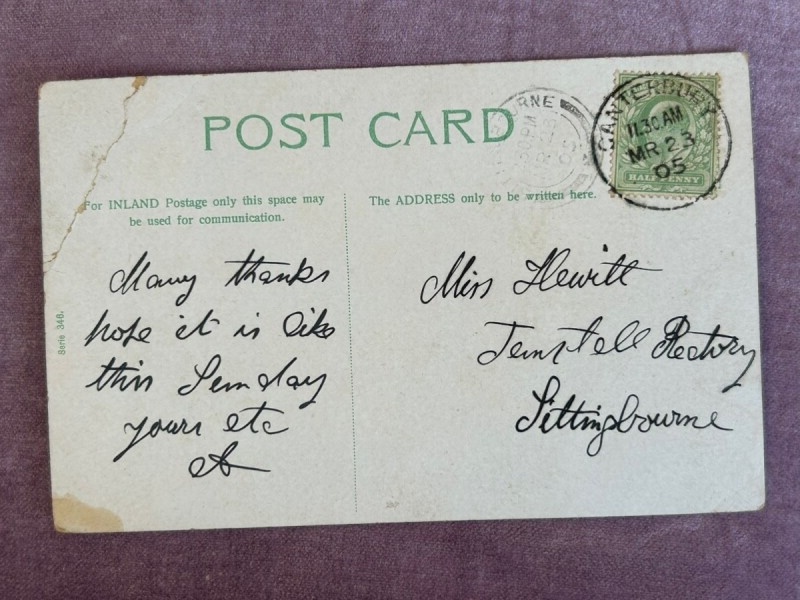 POST CARD
CANTERBURY
11.30 AM
MR 23
05
HALFPENNY
URNE
For INLAND Postage only this space may
be used for communication.
The ADDRESS only to be written here.
Many thanks
hope it is like
this Sunday
yours etc
Miss Hewitt
Tunstall Rectory
Sittingbourne
Serie 346.